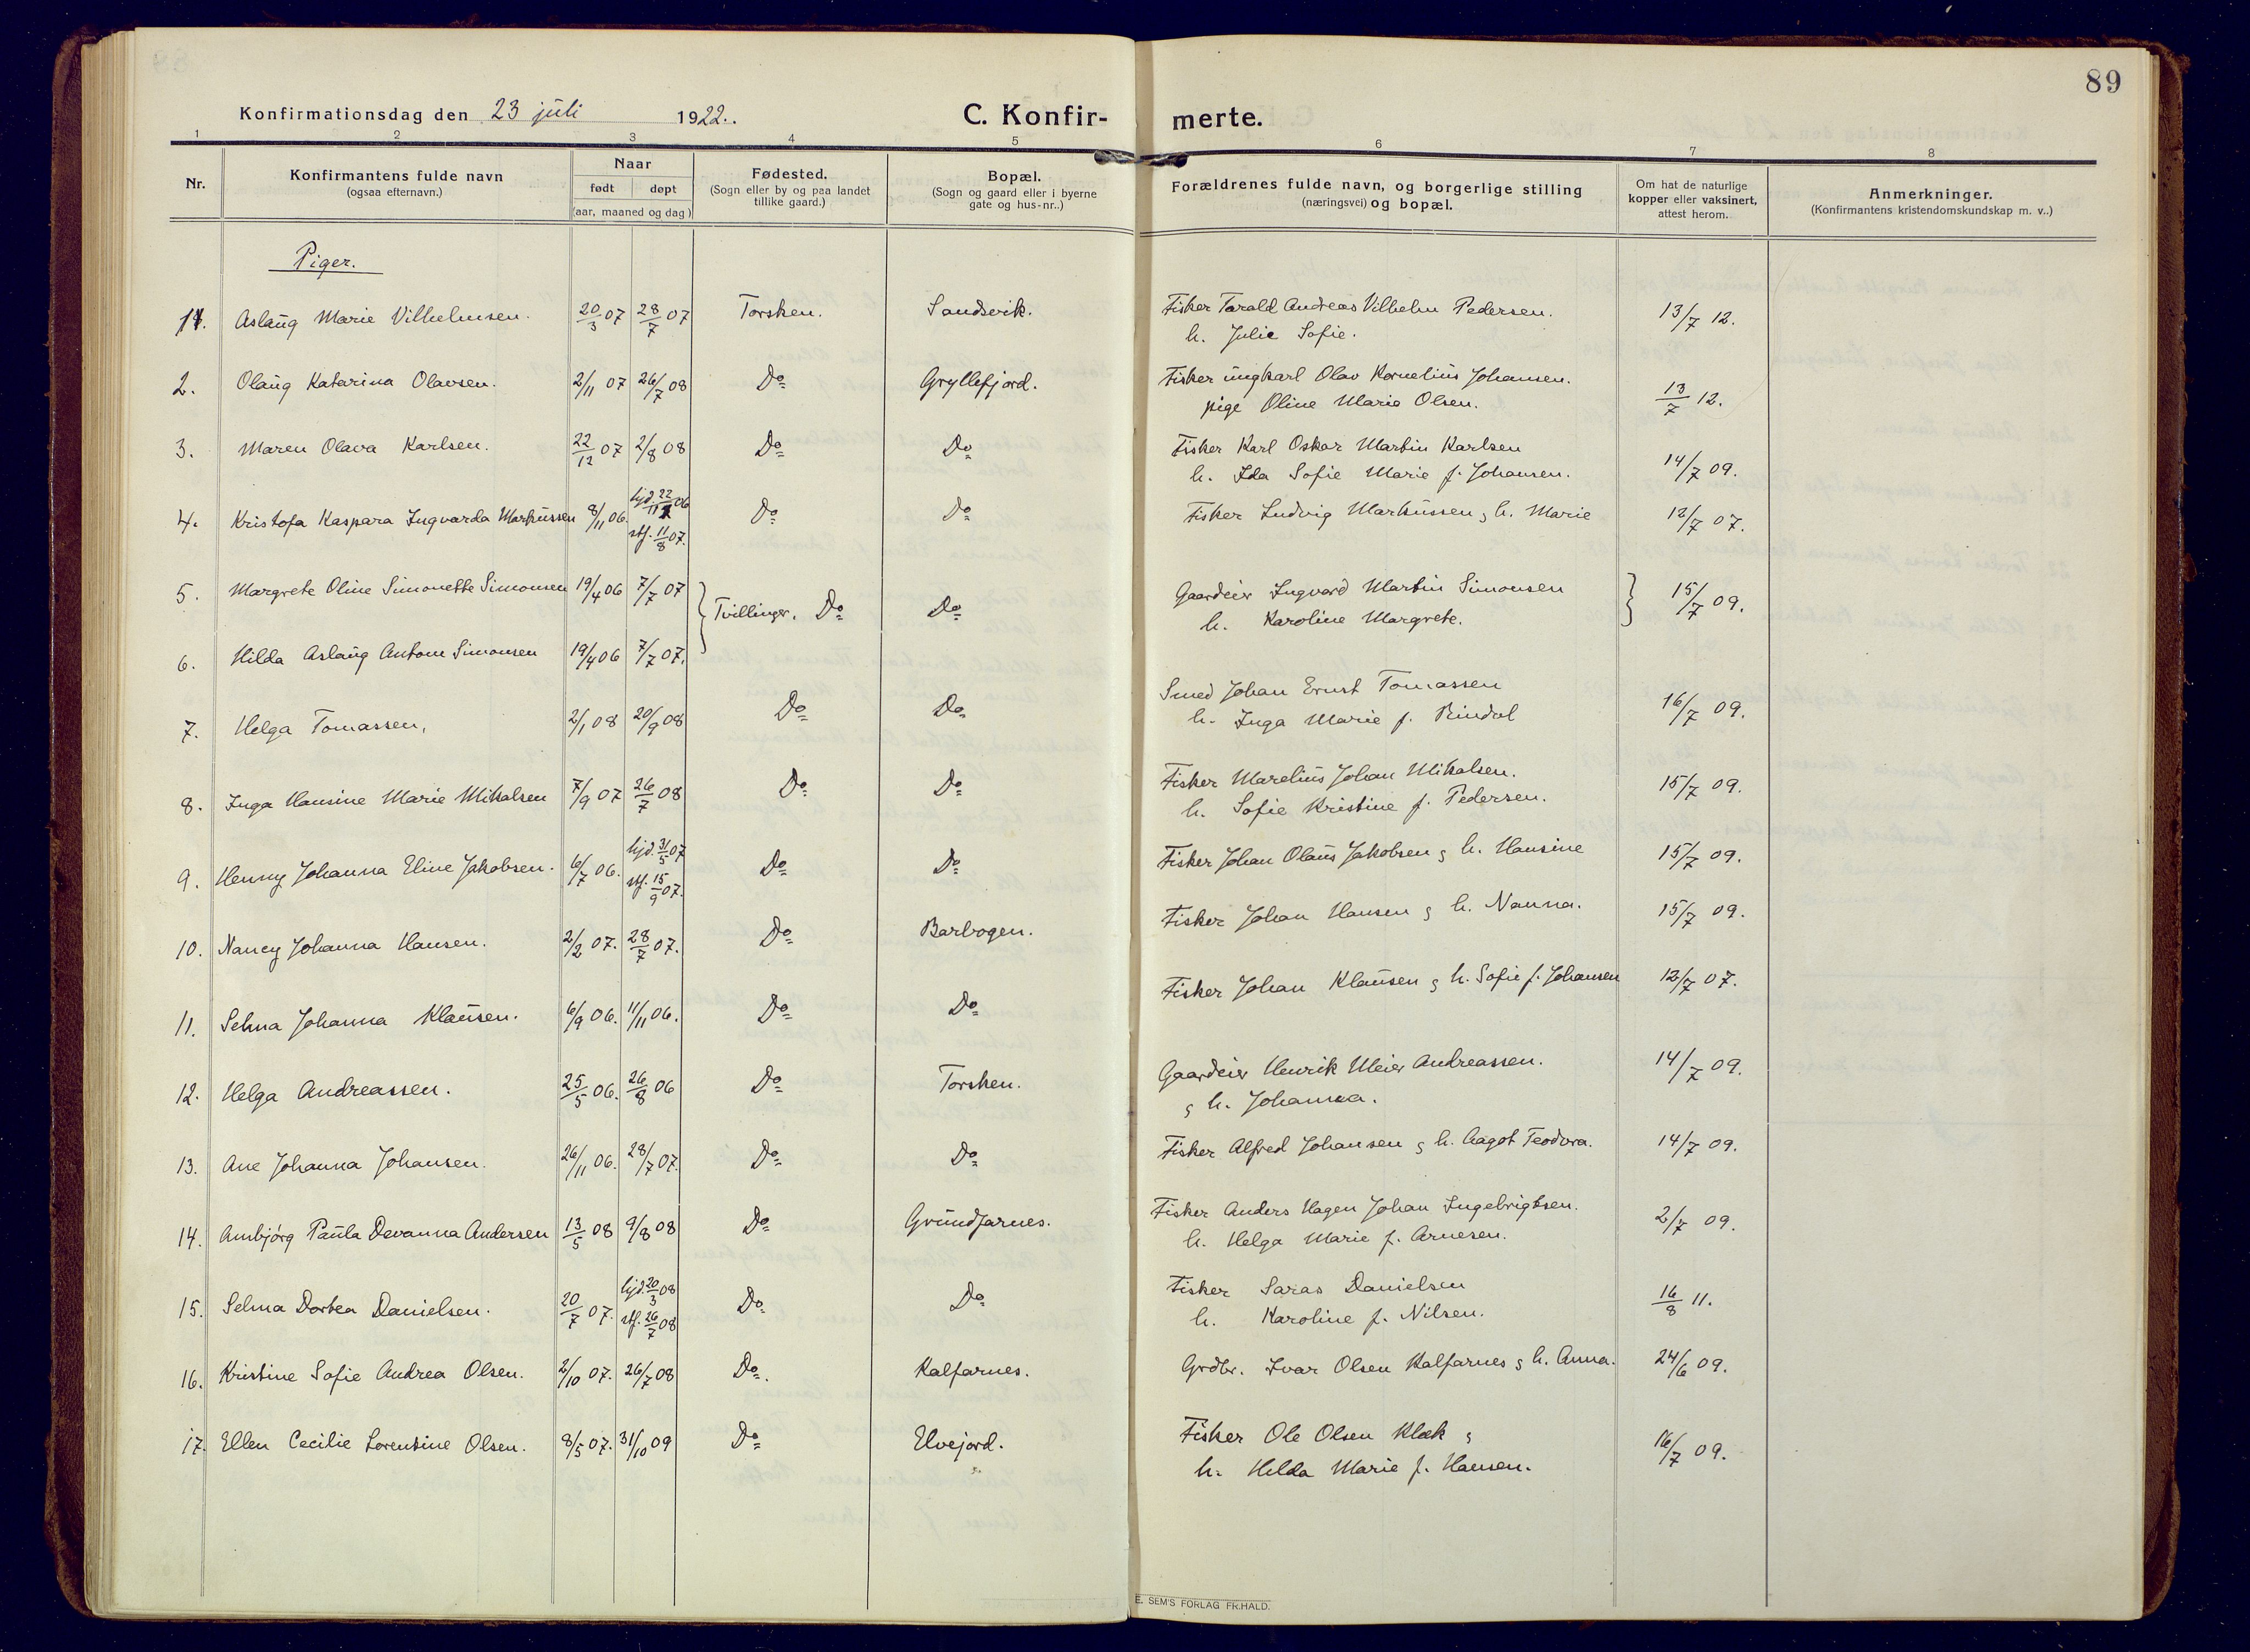 89
Konfirmationsdag den 23 juli 1922.
C. Konfir- merte.
1 2 3 4 5 6 7 8
Nr.
Konfirmantens fulde navn
(ogsaa efternavn.)
Naar
født døpt
(aar, maaned og dag)
Fødested.
(Sogn eller by og paa landet
tillike gaard.)
Bopæl.
(Sogn og gaard eller i byerne
gate og hus-nr..)
Forældrenes fulde navn, og borgerlige stilling
(næringsvei) og bopæl.
Om hat de naturlige
kopper eller vaksinert,
attest herom.
Anmerkninger.
(Konfirmantens kristendomskundskap m. v..)
Piger.
1. Aslaug Marie Vilhelmsen. 20/3 07 28/7 07 Torsken. Sandsvik. Fisker Torald Andreas Vilhelm Pedersen. 13/7 12.
h. Julie Sofie.
2. Olaug Katarina Olavsen. 2/11 07 26/7 08 Do Gryllefjord. Fisker ungkarl Olav Kornelius Johansen. 13/7 12.
pige Oline Marie Olsen.
3. Maren Olava Karlsen. 22/12 07 2/8 08 Do Do Fisker Karl Oskar Martin Karlsen
h. Ida Sofie Marie f. Johansen. 14/7 09.
4. Kristofa Kaspara Ingvarda Markussen 8/11 06. hjd. 22/11 06 Do Do Fisker Ludvig Markussen & h. Marie 12/7 07.
stf. 11/8 07.
5. Margrete Oline Simonette Simonsen 19/4 06 7/7 07 Tvillinger. Do Do Gaardeier Ingvard Martin Simonsen 15/7 09.
h. Karoline Margrete.
6. Hilda Aslaug Antom Simonsen 19/4 06 7/7 07.
7. Helga Tomassen, 2/1 08 20/9 08 Do Do Smed Johan Ernst Tomassen
h. Inga Marie f. Rindal 16/7 09.
8. Inga Hansine Marie Mikalsen 7/9 07 26/7 08 Do Do Fisker Marelius Johan Mikalsen. 15/7 09.
h. Sofie Kristine f. Pedersen.
9. Henny Johanna Eline Jakobsen. 6/7 06. hjd. 31/5 07 Do Do Fisker Johan Olaus Jakobsen & h. Hansine 15/7 09.
stf. 15/9 07.
10. Nancy Johanna Hansen. 2/2 07. 28/7 07. Do Barbogen. Fisker Johan Hansen & h. Nanna. 15/7 09.
11. Selma Johanna Klausen. 6/9 06. 11/11 06. Do Do Fisker Johan Klausen & h. Sofie f. Johansen 12/7 07.
12. Helga Andreassen. 25/5 06. 26/8 06 Do Torsken. Gaardeier Henrik Meier Andreassen. 14/7 09.
& h. Johanna.
13. Ane Johanna Johansen. 26/11 06. 28/7 07. Do Do Fisker Alfred Johansen & h. Aagot Teodora. 14/7 09.
14. Ambjørg Paula Devanna Andersen 13/5 08 9/8 08 Do Grundfarnes. Fisker Anders Hagen Johan Ingebrigtsen. 2/7 09.
h. Helga Marie f. Arnesen.
15. Selma Dortea Danielsen. 20/7 07. hjd. 20/3 08 Do Do Fisker Saras Danielsen 16/8 11.
stf. 26/7 08 h. Karoline f. Nilsen.
16. Kristine Sofie Andrea Olsen. 2/10 07. 26/7 08 Do. Kalfarnes. Grdbr. Ivar Olsen Kalfarnes & h. Anna. 24/6 09.
17. Ellen Cecilie Lorentine Olsen. 8/5 07. 31/10 09 Do Elvejord. Fisker Ole Olsen Klæk & 16/7 09.
h. Hilda Marie f. Hansen.
E. SEM'S FORLAG FR.HALD.